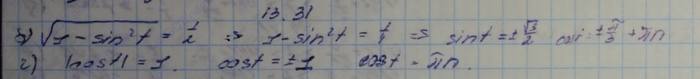 13.31
в) √1 - sin²t = 1/2 ⇒ 1 - sin²t = 1/4 ⇒ sin t = ± √3/2 ± π/3 + πn
г) |cos t| = 1. cos t = ± 1 πn.